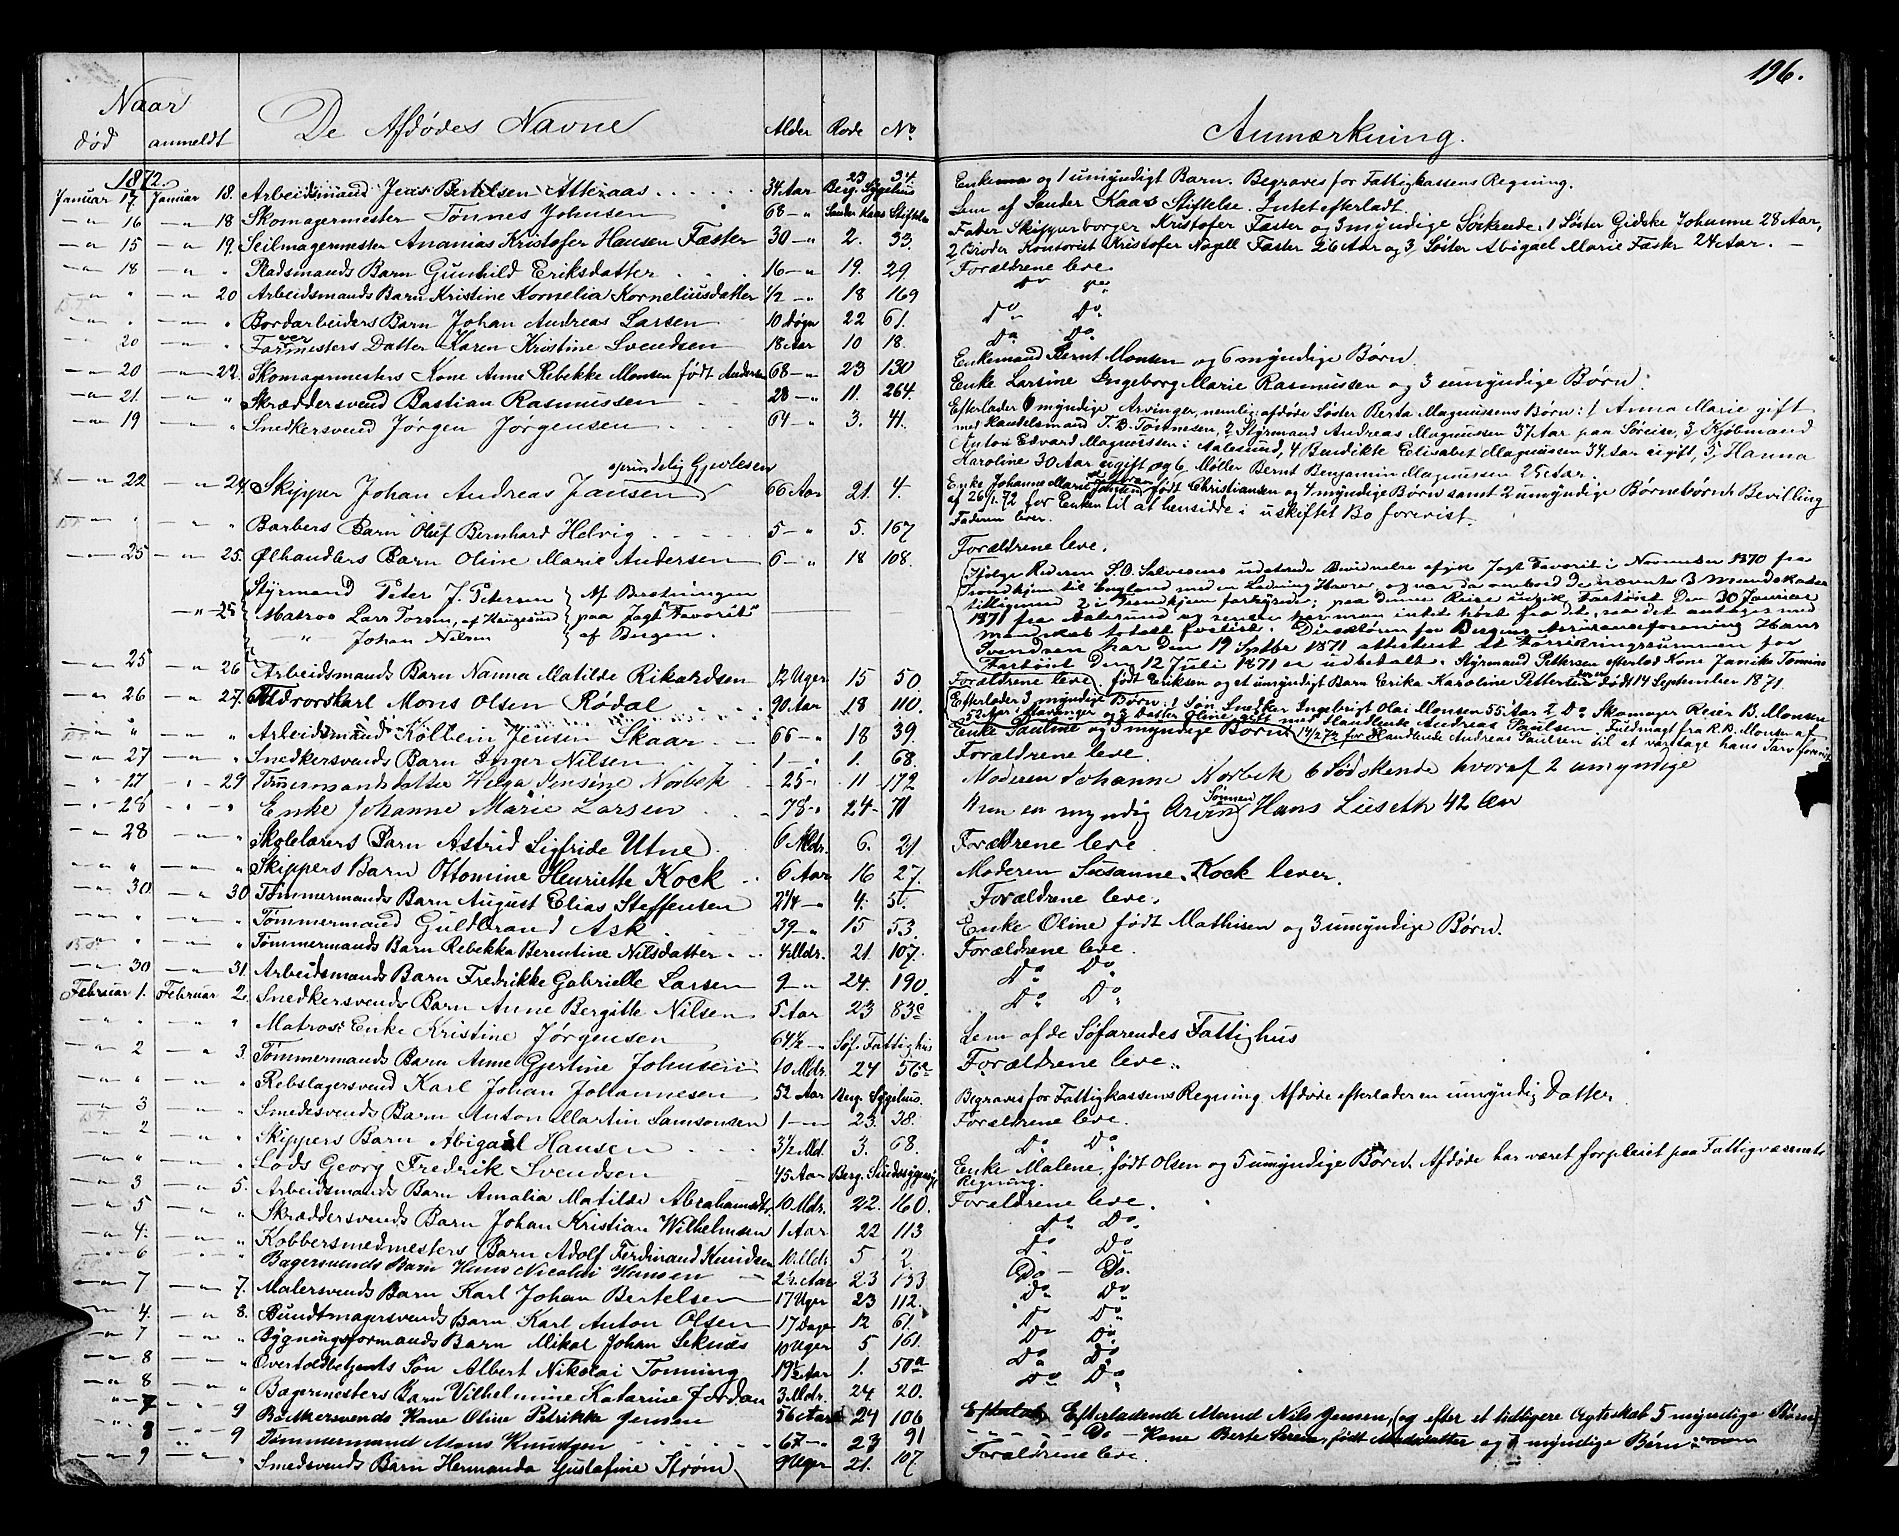 196.
Naar
død anmeldt De Afdødes Navne Alder Rode No Anmærkning.
1872.
Januar 17. Januar 18. Arbeidsmand Jens Bertelsen Atteraas 34 Aar Berg. Sygehus 23 34 Enke og 1 umyndigt Barn. Begraves for Fattigkassens Regning.
" 16 " 18 Skomagermester Tønnes Johnsen 68 " Sander Kaas Stiftelse Lem af Sander Kaas Stiftelse. Intet efterladt.
" 15 " 19. Seilmagermester Ananias Kristofer Hansen Fæster 30 " 2. 33. Fader Skipperborger Kristofer Fæster og 3 myndige Søskende: 1 Søster Gidske Johanne 28 Aar,
2 Broder Kontorist Kristofer Nagell Fæster 26 Aar og 3, Søster Abigael Marie Fæster 24 Aar.
" 18 " " Pladsmands Barn Gunhild Eriksdatter 16 " 19. 29. Forældrene leve.
" " " 20 Arbeidsmands Barn Kristine Kornelia Korneliusdatter 1/2 " 18 169 Do Do
" " " " Bordarbeiders Barn Johan Andreas Larsen 10 Døgn 22 61. Do Do
" 20 " " Farvermesters Datter Karen Kristine Svendsen 18 Aar 10 18. Do Do
" 20 " 22. Skomagermesters Kone Anne Rebekke Monsen født Andersen 68 " 23 130 Enkemand Bernt Monsen og 6 myndige Børn.
" 21. " " Skræddersvend Bastian Rasmussen 28 " 11. 264. Enke Larsine Ingeborg Marie Rasmussen og 3 umyndige Børn.
" 19 " Snedkersvend Jørgen Jørgensen 64 " 3. 41. Efterlader 6 myndige Arvinger, nemlig: afdøde Søster Berta Magnussens Børn: 1 Anna Marie gift
med Handelsmand T. B. Tønnesen, 2, Styrmand Andreas Magnussen 37 Aar paa Søreise, 3, Kjøbmand
Anton Edvard Magnussen i Aalesund, 4 Bendikte Elisabet Magnussen 34 Aar ugift, 5, Hanna
Karoline 30 Aar ugift og 6, Møller Bernt Benjamin Magnussen 25 Aar.
oprindelig Gjerlesen
" 22 " 24. Skipper Johan Andreas Jansen 66 Aar 21. 4. Enke Johanne Marie Jansen født Christiansen og 4 myndige Børn samt 2 umyndige Børnebørn. Bevilling
af 26/1.72 for Enken til at hensidde i uskiftet Bo forevist.
" " " " Barbers Barn Oluf Bernhard Helvig 5 " 5. 167 Faderen lever.
" 25 " 25. Ølhandlers Barn Oline Marie Andersen 6 " 18 108. Forældrene leve.
Styrmand Peter J. Petersen
" 25 Matros Lars Torsen, af Haugesund
" Johan Nilsen
Af Besætningen
paa Jagt "Favorit"
af Bergen.
Ifølge Rederen S. O. Salvesens udstedte Bevidnelse afgik Jagt Favorit i November 1870 fra
Trondhjem til England med en Ladning Havre, og var da ombord de nævnte 3 Mandskaber
tilligemed 2 i Trondhjem forhyrede; paa denne Reise indgik Fartøiet den 30 Januar
1871 fra Aalesund og senere har man intet hørt fra det, saa det antages med
Mandskab totalt forlist. Direktøren for Bergens Assuranceforening Hans
Svendsen har den 19 Septbr 1871 attesteret at Forsikringssummen for
Fartøiet den 12 Juli 1871 er udbetalt. Styrmand Pettersen efterlod Kone Janika
født Eriksen og et umyndigt Barn Erika Karoline Pettersen født 14 September 1871.
" 25 " 26 Arbeidsmands Barn Nanna Matilde Rikardsen 12 Uger 15 50 Forældrene leve.
" 26 " 27. Mons Olsen Rødal 90 Aar 18 110. Efterlader 3 myndige Børn: 1 Søn Snedker Ingebrigt Olai Monsen 55 Aar 2 Do Skomager Reier B. Monsen
52 Aar i Stavanger og 3 Datter Oline gift med Handlende Andreas Paulsen. Fuldmagt fra R. B. Monsen af
17/2 72 for Handlende Andreas Paulsen til at varetage hans Tarv forevist.
" " " " Arbeidsmand Kolbein Jensen Skaar 66 " 18 39. Enke Pauline og 3 myndige Børn.
" 27 " " Snedkersvends Barn Inger Nilsen 1 " 1. 68. Forældrene leve.
" 27 " 29 Tømmermandsdatter Helga Jensine Norbek 25 " 11 172 Moderen Johanne Norbek 6 Sødskende hvoraf 2 umyndige
" 28 " " Enke Johanne Marie Larsen 78 " 24 71 Kun en myndig Arving Sønnen Hans Lieseth 42 Aar
" 28 " " Skolelærers Barn Astrid Sigfride Utne 6 Mdr. 6. 21 Forældrene leve
" " " " Skippers Barn Ottomine Henriette Kock 6 Aar 16 27. Moderen Susanne Kock lever.
" 30 " 30. Tømmermands Barn August Elias Steffensen 2 1/4 " 4. 51. Forældrene leve.
" " " " Tømmermand Guldbrand Ask 39 " 15 53. Enke Oline født Mathisen og 3 umyndige Børn.
" " " " Tømmermands Barn Rebekka Berentine Nilsdatter 4 Mdr. 21. 107. Forældrene leve
" 30 " 31. Arbeidsmands Barn Fredrikke Gabrielle Larsen 9 " 24. 190. Do Do
Februar 1. Februar 2. Snedkersvends Barn Anne Bergitte Nilsen 5 Aar 23 83c Do Do
" " " " Matros Enke Kristine Jørgensen 64 1/2 " Søf. Fattighus Lem af de Søfarendes Fattighus
" 2 " 3. Tømmermands Barn Anne Gjertine Johnsen 10 Mdr. 24 56a Forældrene leve.
" " " " Rebslagersvend Karl Johan Johannesen 52 Aar Berg. Sygehus. Begraves for Fattigkassens Regning. Afdøde efterlader en umyndig Datter.
" 3 " " Smedesvends Barn Anton Martin Samsonsen 1 " 23. 38. Forældrene leve.
" 2 " " Skippers Barn Abigael Hansen 3 1/2 Md. 3. 68. Do Do
" " " " Lods Georg Fredrik Svendsen 45 Aar Berg. Sindssygeasyl Enke Malene, født Olsen og 5 umyndige Børn. Afdøde har været forpleiet paa Fattigvæsenets
Regning.
" 3 " 5. Arbeidsmands Barn Amalia Matilde Abrahamsdtr 10 Mdr. 22. 160. Forældrene leve.
" 5 " " Skræddersvends Barn Johan Kristian Wilhelmsen 1 Aar 22 113 Do Do
" 4. " " Kobbersmedmesters Barn Adolf Ferdinand Knudsen 10 Mdr. 5 2. Do Do
" 6 " " Bagersvends Barn Hans Nicolai Hansen 2 1/2 Aar 23 153 Do Do.
" 7 " 7. Malersvends Barn Karl Johan Bertelsen 17 Uger 23 112. Do Do
" 4. " 8. Bundtmagersvends Barn Karl Anton Olsen 17 Dage 12 61. Do Do
" 7 " " Bygningsformands Barn Mikal Johan Seknes 10 Uger 5 161. Do Do
" 8 " " Overtoldbetjents Søn Albert Nikolai Tonning 19 1/2 Aar 1. 50a Do Do
" 8 " " Bagermesters Barn Vilhelmine Katarine Jordan 3 Mdr. 24. 20. Do Do
" 7 " 9 Bødkersvends Kone Oline Petrikke Jensen 56 Aar 24 106 Efterladende Mand Nils Jensen, (og efter et tidligere Ægteskab 5 myndige Børn)
" 8 " 9 Tømmermand Mons Knudsen 67 " 23 91 Do Kone Berte Serine, født Madsdatter og myndige Børn
" 9 " " Smedsvends Barn Hermanda Gustafine Strøm 9 Uger 21. 107 Forældrene leve.